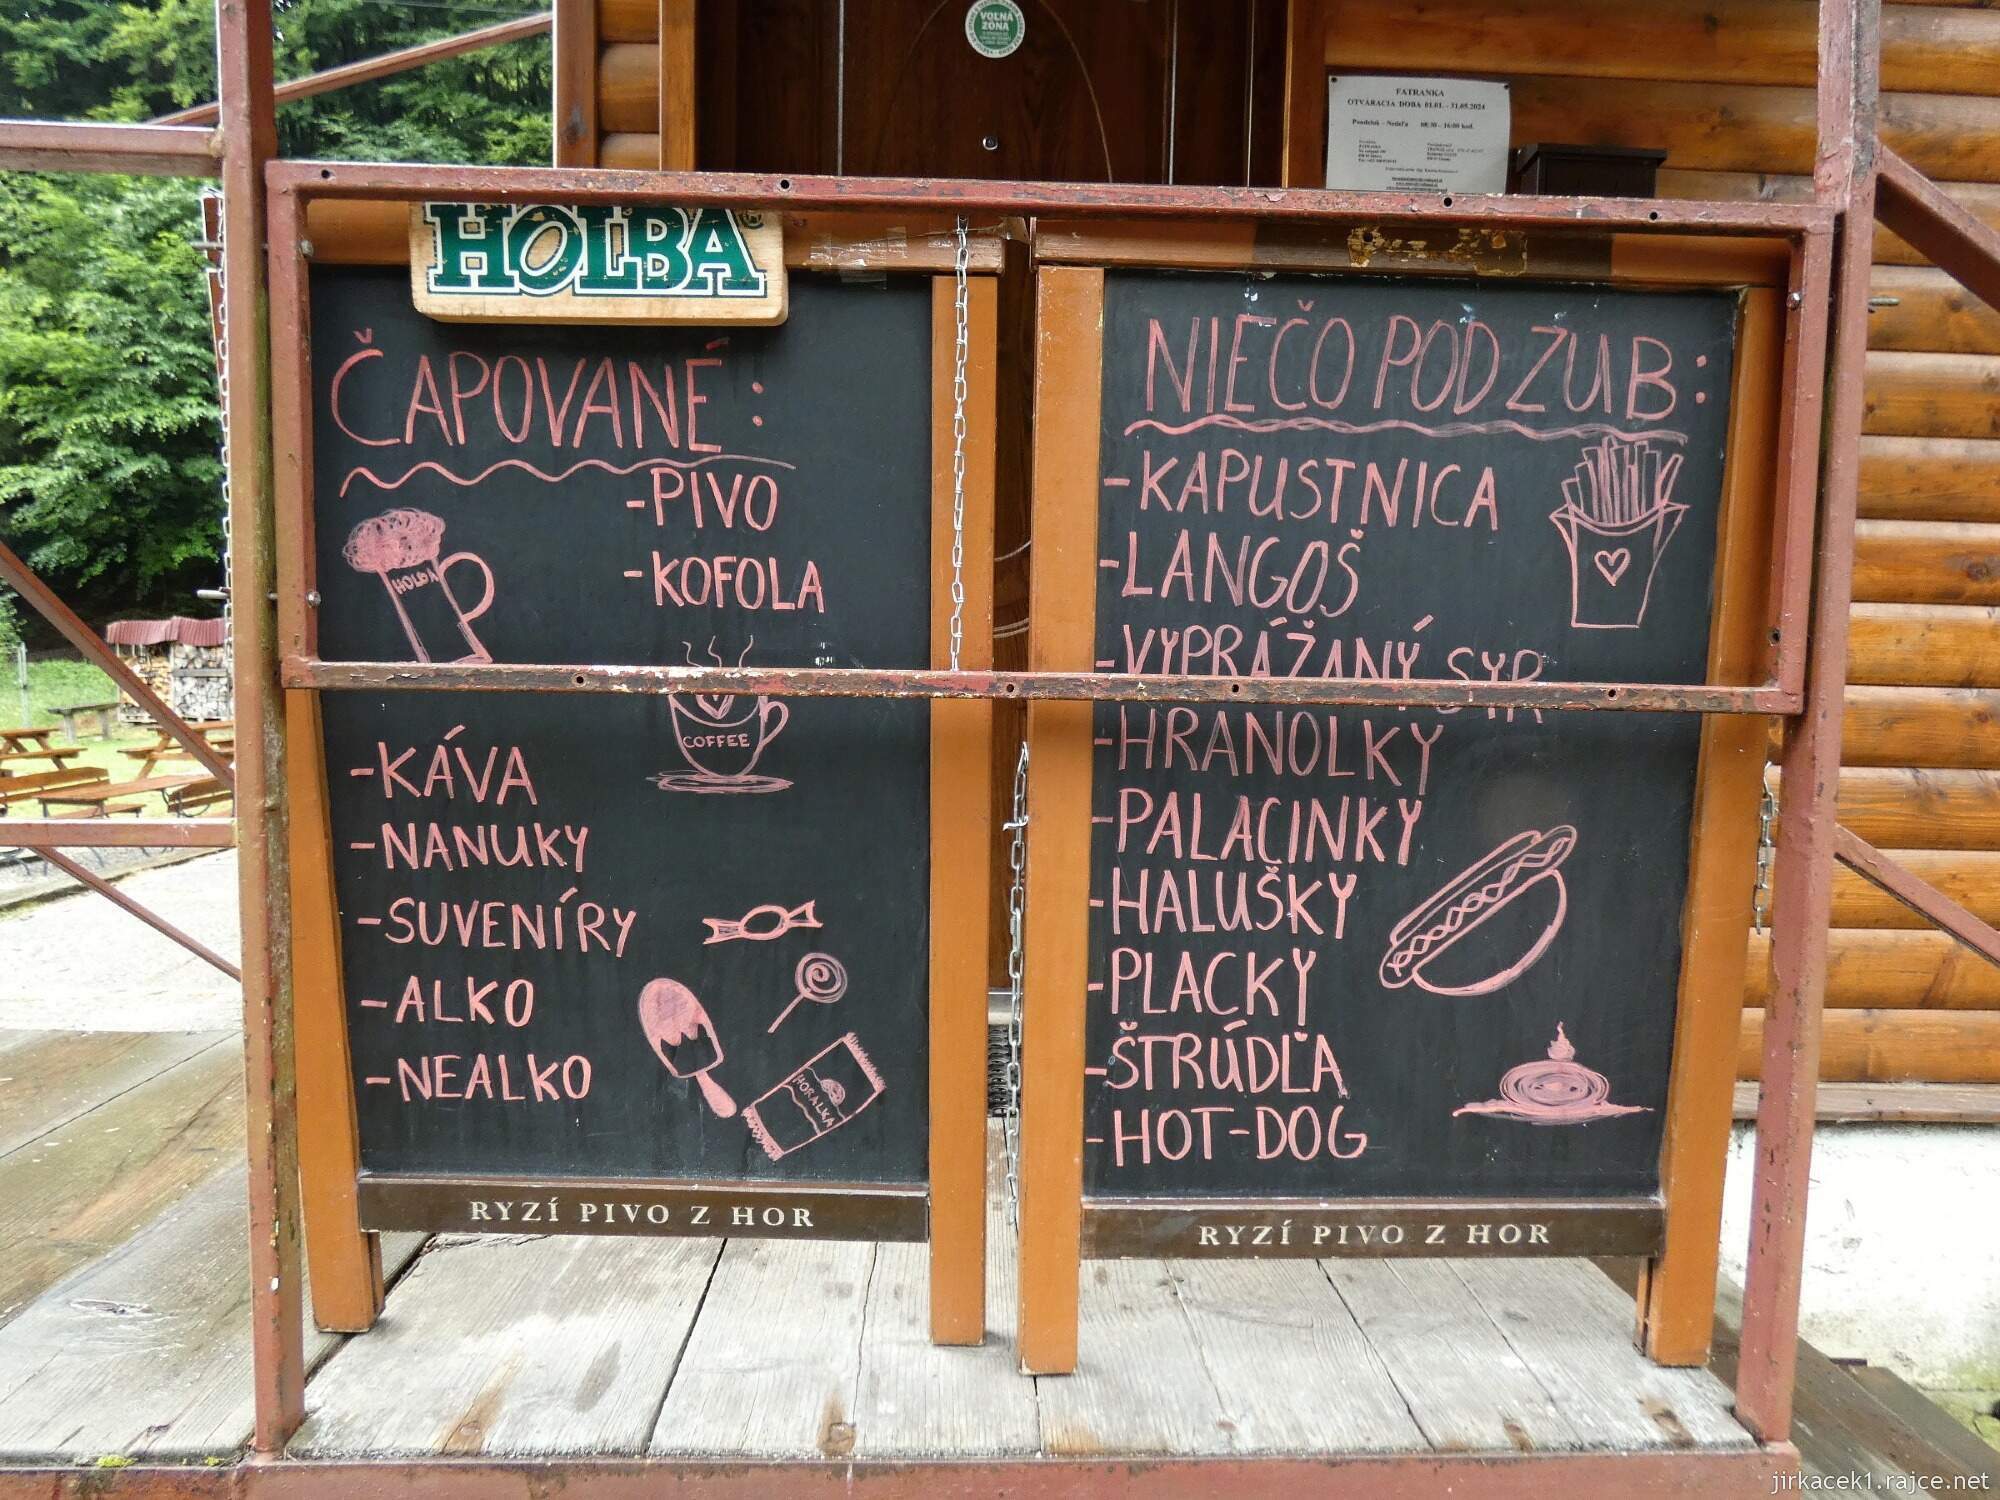 VOĽNÁ
ZÓNA
FATRANKA
OTVÁRACIA DOBA 01.01. - 31.05.2024
Pondelok - Nedeľa 08:30 - 16:00 hod.
HOLBA
ČAPOVANÉ:
-PIVO
-KOFOLA
HOLBA
COFFEE
-KÁVA
-NANUKY
-SUVENÍRY
-ALKO
-NEALKO
HORALKA
RYZÍ PIVO Z HOR
NIEČO POD ZUB:
-KAPUSTNICA
-LANGOŠ
-VYPRÁŽANÝ SYR
-HRANOLKY
-PALACINKY
-HALUŠKY
-PLACKY
-ŠTRÚDĽA
-HOT-DOG
RYZÍ PIVO Z HOR
jirkacek1.rajce.net